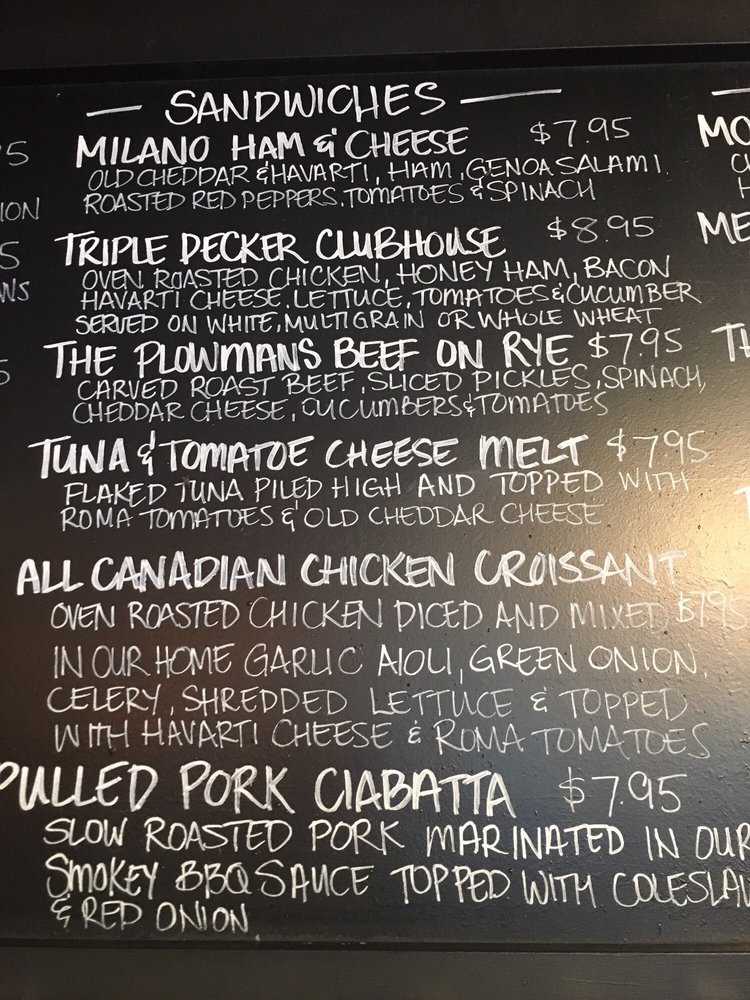 SANDWICHES
MILANO HAM & CHEESE $7.95
OLD CHEDDAR & HAVARTI, HAM, GENOA SALAMI.
ROASTED RED PEPPERS, TOMATOES & SPINACH
TRIPLE DECKER CLUBHOUSE $8.95
OVEN ROASTED CHICKEN, HONEY HAM, BACON
HAVARTI CHEESE, LETTUCE, TOMATOES & CUCUMBER
SERVED ON WHITE, MULTIGRAIN OR WHOLE WHEAT
THE PLOWMANS BEEF ON RYE $7.95
CARVED ROAST BEEF, SLICED PICKLES, SPINACH,
CHEDDAR CHEESE, CUCUMBERS & TOMATOES
TUNA & TOMATOE CHEESE MELT $7.95
FLAKED TUNA PILED HIGH AND TOPPED WITH
ROMA TOMATOES & OLD CHEDDAR CHEESE
ALL CANADIAN CHICKEN CROISSANT
OVEN ROASTED CHICKEN DICED AND MIXED $7.95
IN OUR HOME GARLIC AIOLI, GREEN ONION,
CELERY, SHREDDED LETTUCE & TOPPED
WITH HAVARTI CHEESE & ROMA TOMATOES
PULLED PORK CIABATTA $7.95
SLOW ROASTED PORK MARINATED IN OUR
SMOKEY BBQ SAUCE TOPPED WITH COLESLAW
& RED ONION